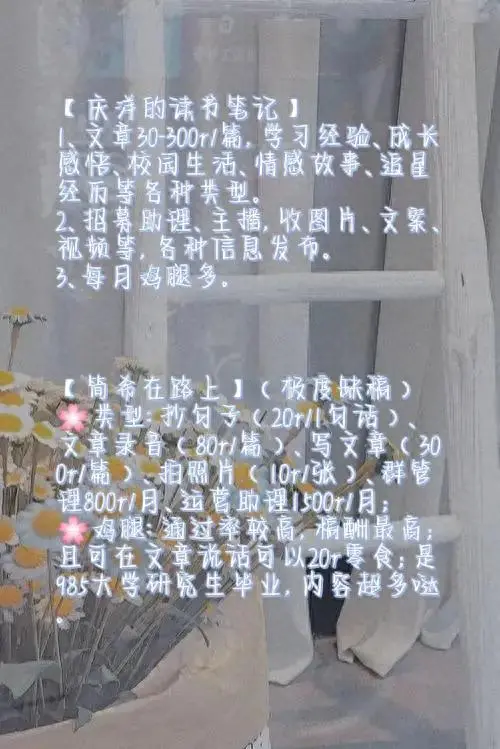 【庆洋的读书笔记】
1、文章30-300r/篇, 学习经验、成长
感悟、校园生活、情感故事、追星
经历等各种类型。
2、招募助理、主播, 收图片、文案、
视频等, 各种信息发布。
3、每月鸡腿多。
【简希在路上】(极度缺稿)
🌸类型: 抄句子(20r/1句话)、
文章录音(80r/篇)、写文章(30
0r/篇)、拍照片(10r/张)、群管
理800r/月、运营助理1500r/月;
🌸鸡腿: 通过率较高, 稿酬最高;
且可在文章说话可以20r零食; 是
985大学研究生毕业, 内容超多哒
。